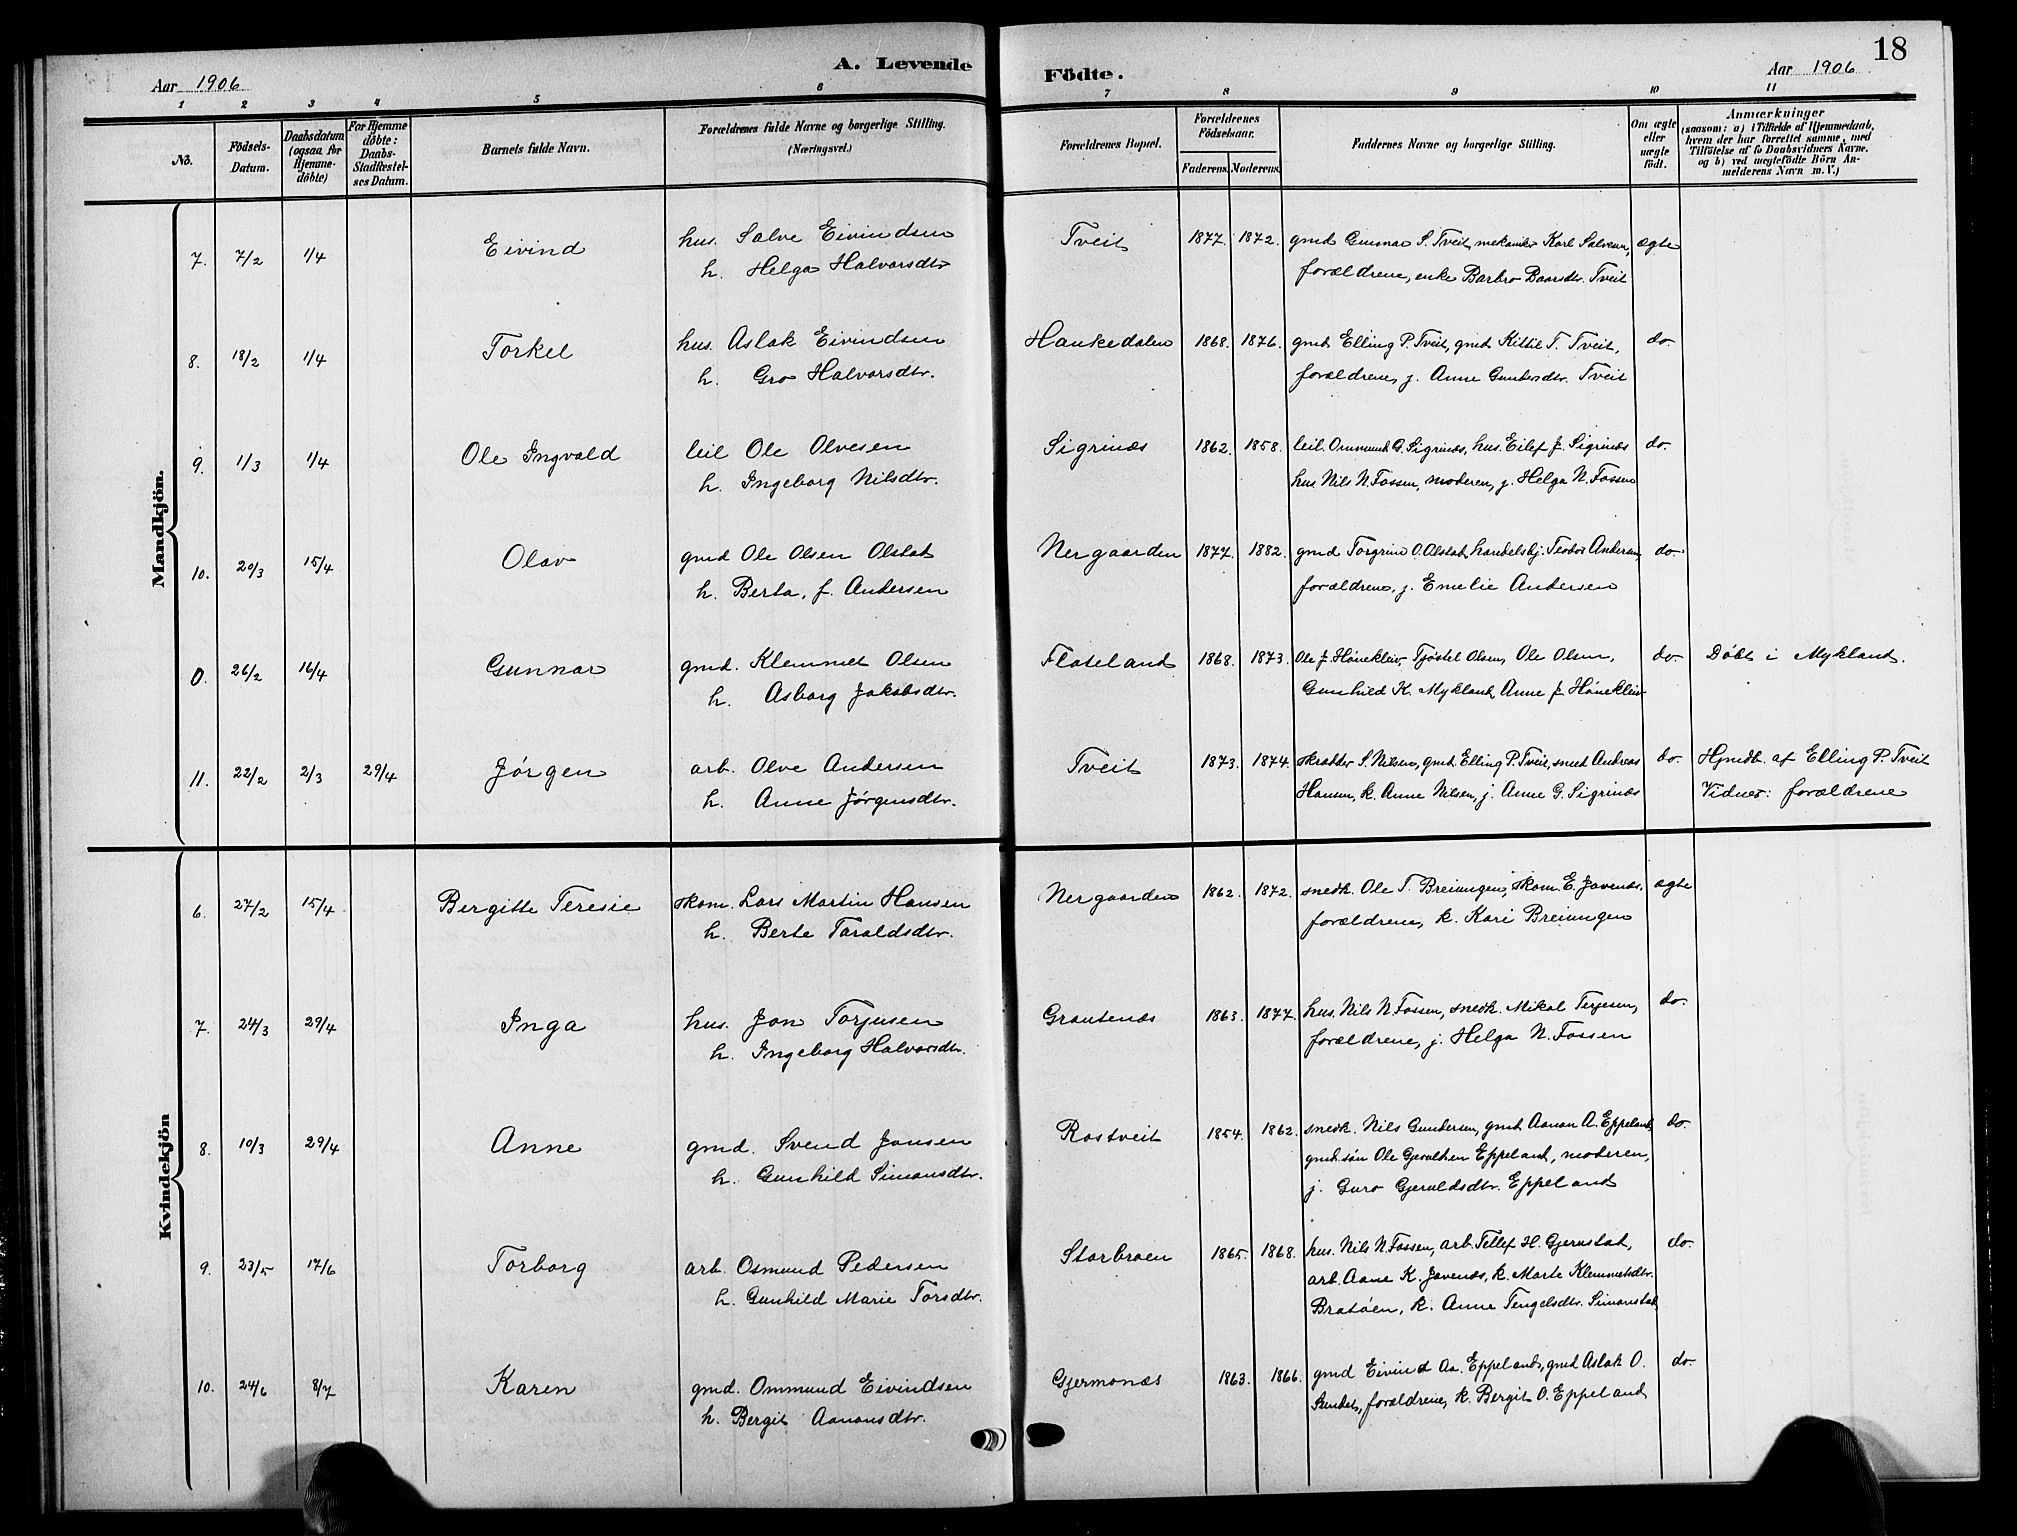 18
A. Levende Födte.
Aar 1906
Aar 1906
1 2 3 4 5 6 7 8 9 10 11
No.
Födsels-Datum.
Daabsdatum (ogsaa för Hjemme-döbte)
For Hjemme döbte: Daabs-Stadfæstel-ses Datum.
Barnets fulde Navn.
Forældrenes fulde Navne og borgerlige Stilling. (Næringsvei.)
Forældrenes Bopæl.
Forældrenes Födselsaar.
Faderens. Moderens.
Faddernes Navne og borgerlige Stilling.
Om ægte eller uægte födt.
Anmærkninger
(saasom: a) i Tilfælde af Hjemmedaab, hvem der har forrettet samme, med Tilföielse af to Daabsvidners Navne, og b) ved uægtefödte Börn An-melderens Navn m. V.)
Mandkjön.
7. 7/2 1/4 Eivind hus. Salve Eivindsen Tveit 1877. 1872. gmd Gunnar S. Tveit, mekaniker Karl Salvesen, ægte
h. Helga Halvorsdtr forældrene, enke Barbro Baarsdtr. Tveit
8. 18/2 1/4 Torkel hus. Aslak Eivindsen Haukedalen 1868. 1876. gmd Elling P. Tveit, gmd Kittil T. Tveit, do.
h. Gro Halvorsdtr. forældrene, j. Anne Gunbersdtr. Tveit
9. 1/3 1/4 Ole Ingvald leil Ole Olvesen Sigrinæs 1862. 1858. leil. Ommund G. Sigrinæs, hus. Eilef J. Sigrinæs do.
h. Ingeborg Nilsdtr. hus. Nils N. Fossen, moderen, j. Helga N. Fossen
10. 20/3 15/4 Olav gmd Ole Olsen Olstat Nergaarden 1877. 1882. gmd Torgrim O. Alstad, handelsbj. Teodor Andersen, do.
h. Berta, f. Andersen forældrene, j. Emelie Andersen
0. 26/2 16/4 Gunnar gmd. Klemmet Olsen Flateland 1868. 1873. Ole J. Hønekleiv, Tjøstel Olsen, Ole Olsen, do. Døbt i Mykland.
h. Asborg Jakobsdtr. Gunhild K. Mykland, Anne J. Hønekleiv
11. 22/2 2/3 29/4 Jørgen arb. Olve Andersen Tveit 1873. 1874. skrædder S. Nilsen, gmd. Elling P. Tveit, smed Andreas do. Hjmdb. af Elling P. Tveit
h. Anne Jørgensdtr. Hansen, k. Anne Nilsen, j. Anne G. Sigrinæs Vidner: forældrene
Kvindekjön
6. 27/2 15/4 Bergitte Teresie skom. Lars Martin Hansen Nergaarden 1862. 1872. snedk. Ole T. Breiungen, skom. E. Javenæs, ægte
h. Berte Taraldsdtr. forældrene, k. Kari Breiungen
7. 24/3 29/4 Inga hus. Jon Torjusen Grautenæs 1863. 1877. hus. Nils N. Fossen, snedk. Mikal Terjesen, do.
h. Ingeborg Halvorsdtr. forældrene, j. Helga N. Fossen
8. 10/3 29/4 Anne gmd. Svend Jonsen Rostveit 1854. 1862. snedk. Nils Gundersen, gmd Aanon A. Eppeland, do.
h. Gunhild Simonsdtr. gmd.søn Ole Gjeruldsen Eppeland, moderen,
j. Guro Gjeruldsdtr. Eppeland
9. 23/5 17/6 Torborg arb. Osmund Pedersen Storbroen 1865. 1868. hus. Nils N. Fossen, arb. Tellef H. Gjernstat, do.
h. Gunhild Marie Torsdtr. arb. Aane K. Javenæs, k. Marte Klemmetsdtr.
Bratøen, k. Anne Tengelsdtr. Simonstad
10. 24/6 8/7 Karen gmd. Ommund Eivindsen Gjermonæs 1863. 1866. gmd Eivind Aa. Eppeland, gmd Aslak O. do.
h. Bergit Aanonsdtr. forældrene, k. Bergit O. Eppeland